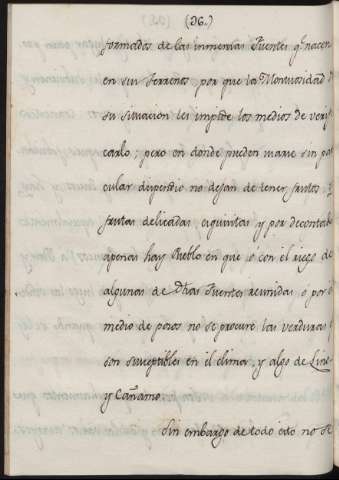 (96.)
formados de las inmensas Fuentes q.e nacen
en sus terrenos, por que la Montuosidad
su situacion les impide los medios de veri
carlo; pero en donde pueden usarse sin par
cular dispendio no dejan de tener frutos y
frutas delicadas, exquisitas y por decontad
apenas hay Pueblo en que ó con el riego de
algunas de Dhas Fuentes reunidas ó por
medio de pozos no se procure las verduras q
son suseptibles en el clima, y algo de Lino
y Cañamo.
Sin embargo de todo esto no se